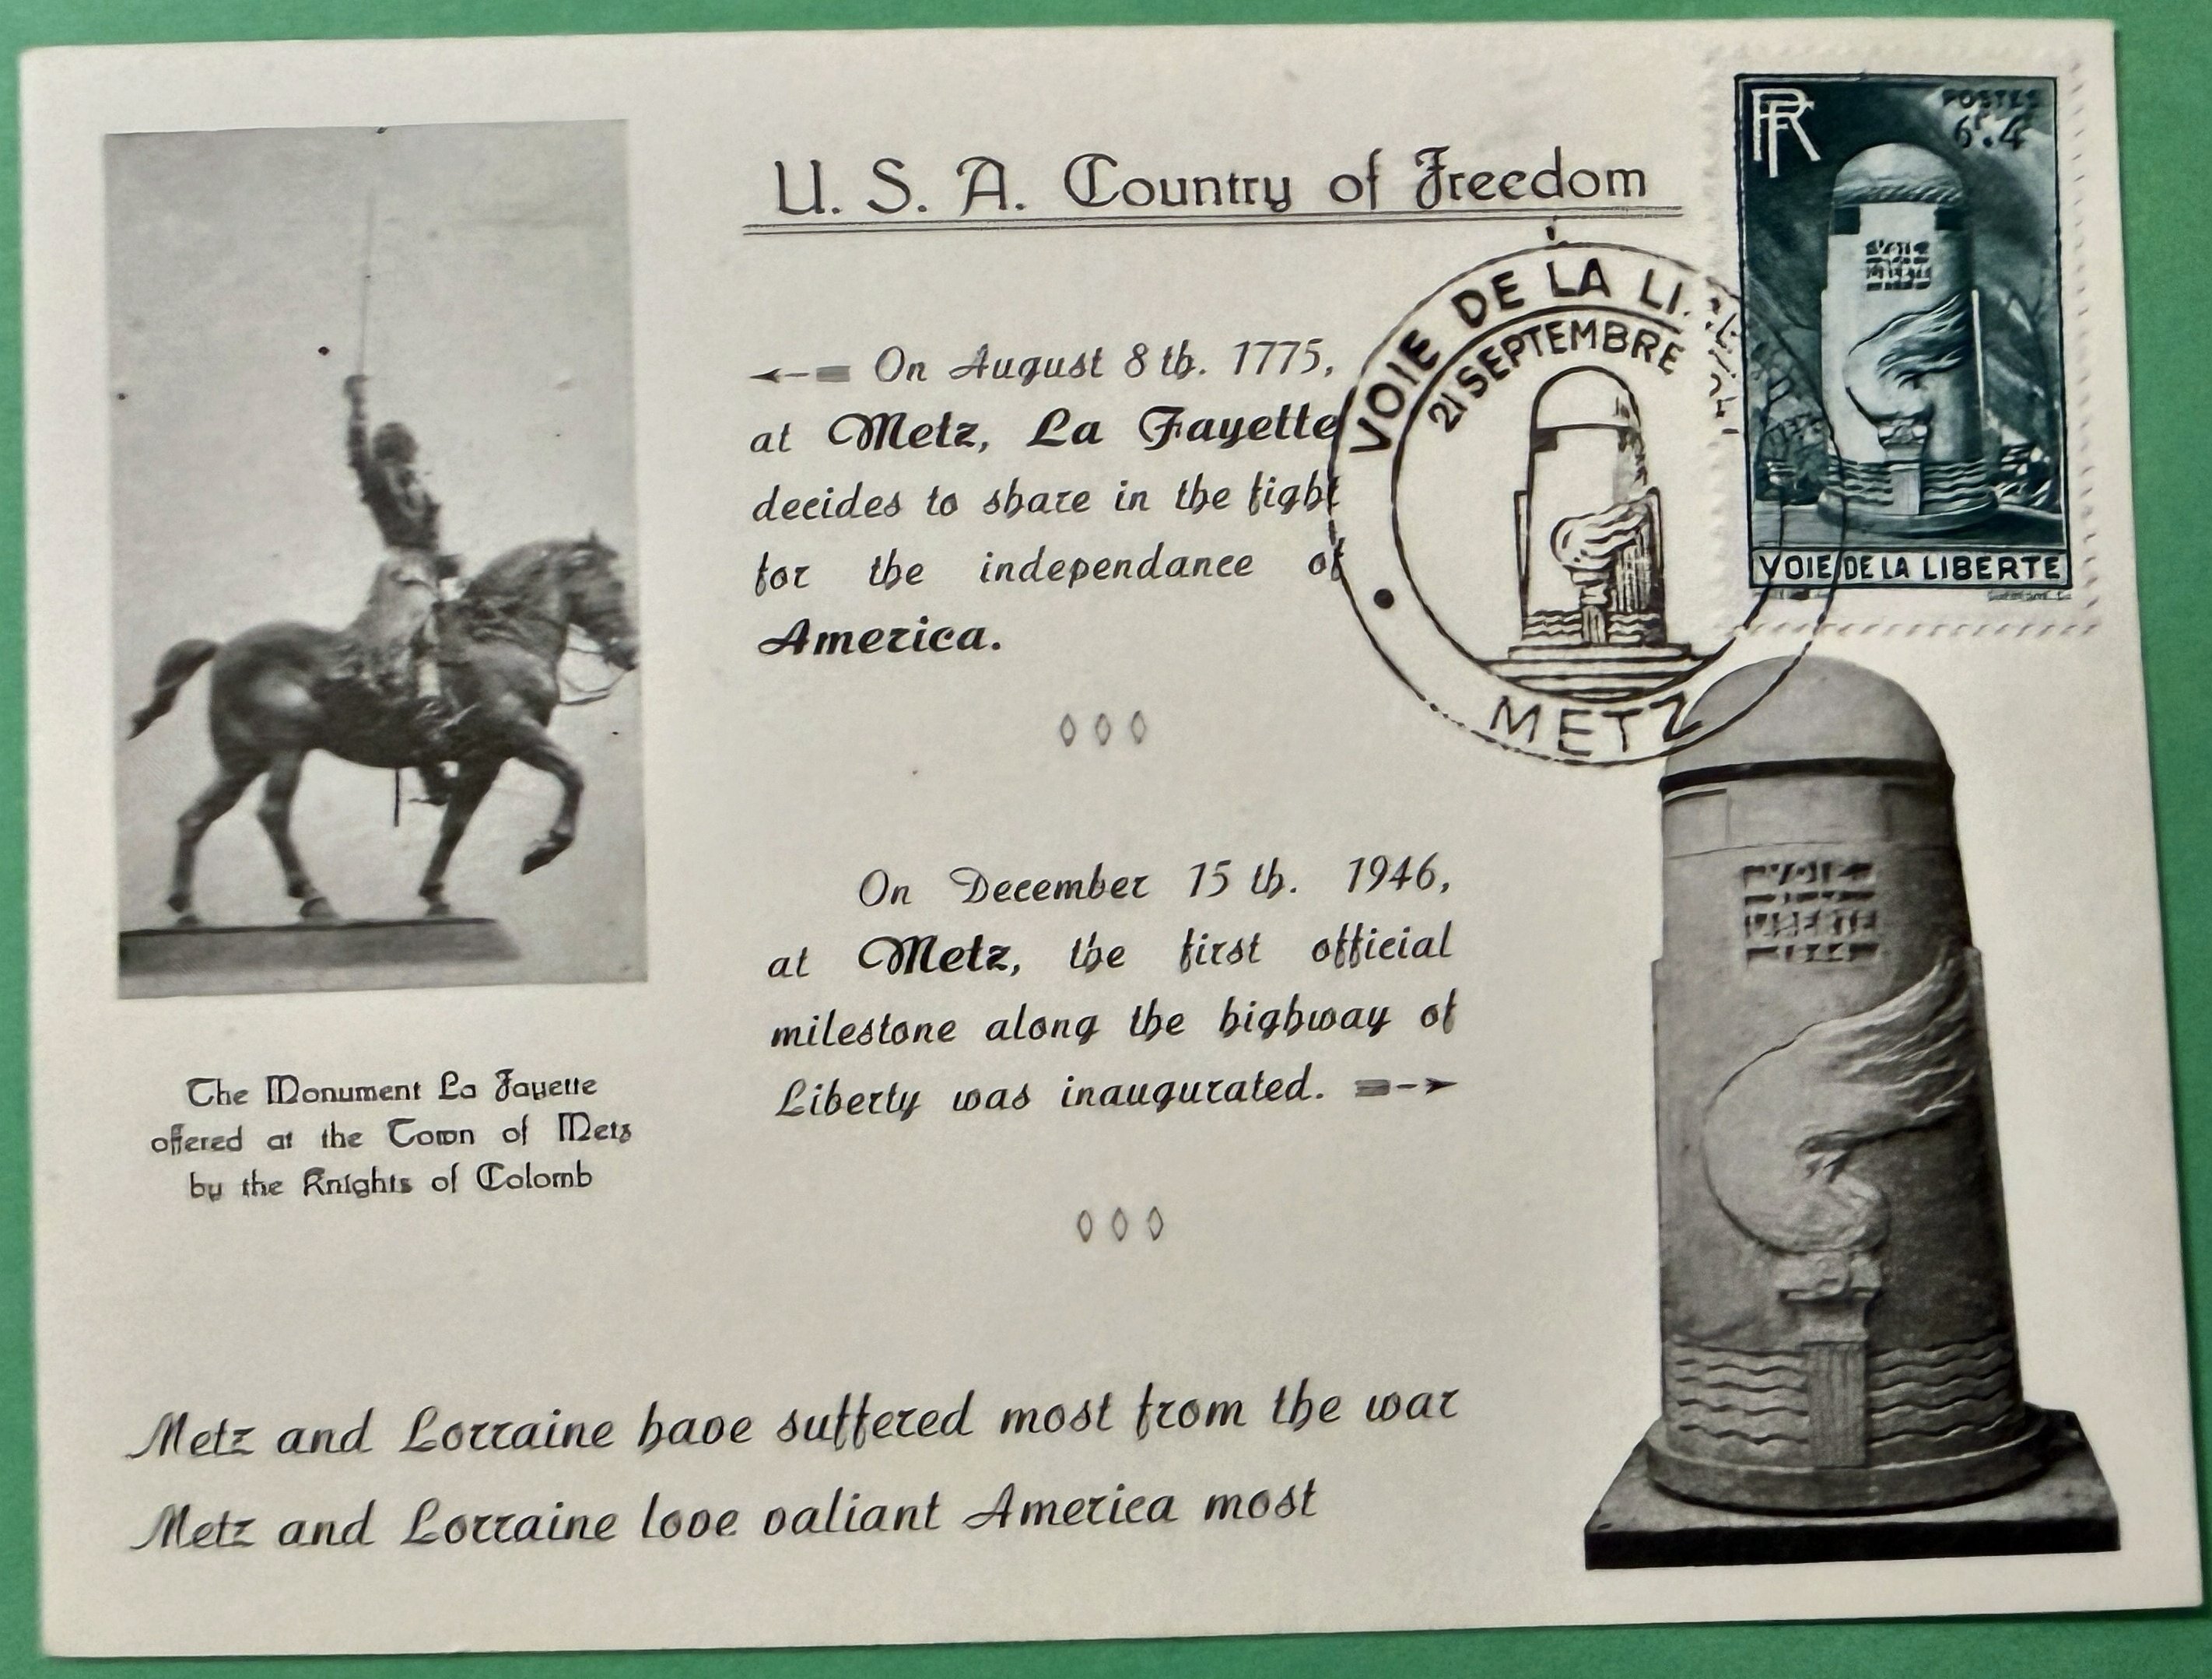 U. S. A. Country of Freedom
On August 8 th. 1775,
at Metz, La Fayette
decides to share in the fight
for the independance of
America.
On December 15 th. 1946,
at Metz, the first official
milestone along the highway of
Liberty was inaugurated.
The Monument La Fayette
offered at the Town of Metz
by the Knights of Colomb
Metz and Lorraine have suffered most from the war
Metz and Lorraine love valiant America most
VOIE DE LA
21 SEPTEMBRE
METZ
RF
POSTES
VOIE DE LA LIBERTE
VOIE
LIBERTE